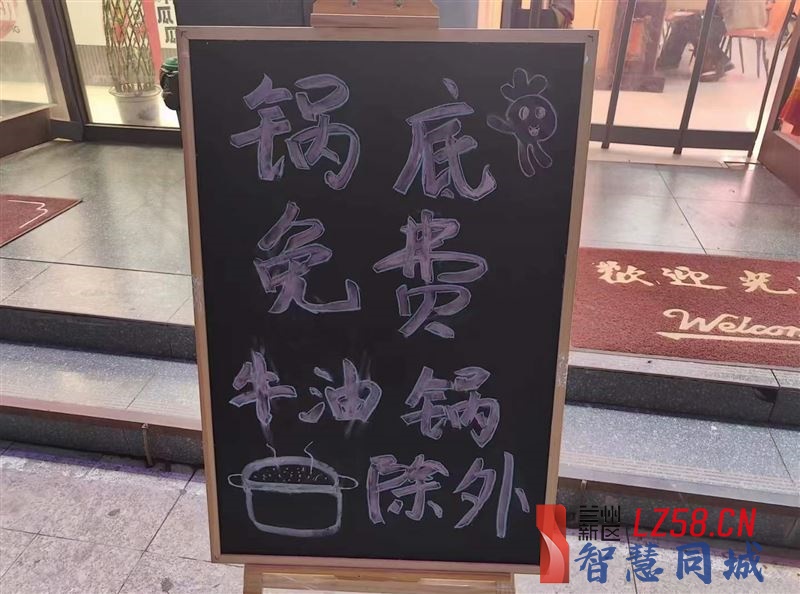 锅底
免费
牛油锅
除外
歡迎光
Welcom
兰州
新区
LZ58.CN
智慧同城